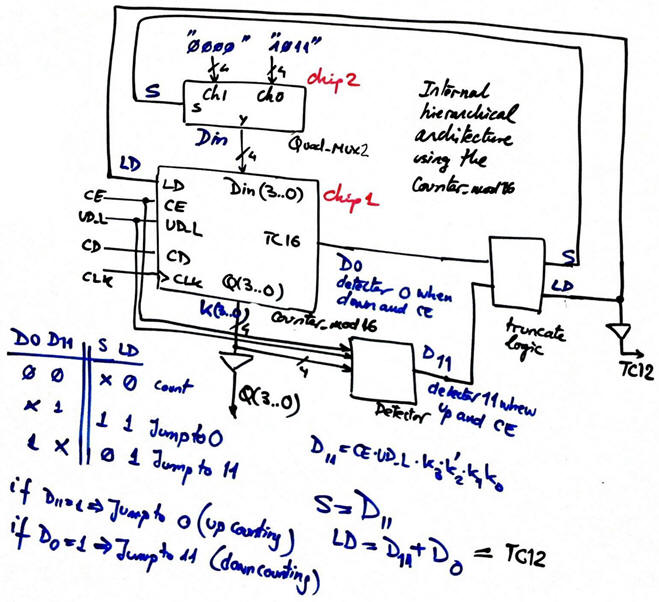 "0000" "1011"
4 4
chip2
S
S
Ch1 Ch0
Y
Quad_Mux2
Din
4
Internal
hierarchical
architecture
using the
Counter_mod16
LD
LD
Din(3..0)
chip1
CE
CE
UD_L
UD_L
TC16
CD
CD
CLK
CLK
Q(3..0)
K(3..0)
4
Counter_mod16
D0
detector 0 when
down and CE
S
LD
truncate
logic
TC12
4
Q(3..0)
Detector
D11
detector 11 when
up and CE
D0 D11 S LD
0 0 X 0 count
X 1 1 1 Jump to 0
1 X 0 1 Jump to 11
D11 = CE·UD_L·K3·K2'·K1·K0
if D11=1 ⇒ Jump to 0 (up counting)
if D0=1 ⇒ Jump to 11 (down counting)
S = D11
LD = D11 + D0 = TC12